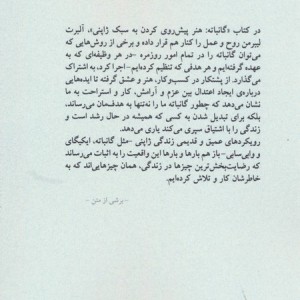 در کتاب «گانباته: هنر پیش‌روی کردن به سبک ژاپنی»، آلبرت
لیبرمن روح و عمل را کنار هم قرار داده و برخی از روش‌هایی که
می‌توان گانباته را در تمام امور روزمره -در هر وظیفه‌ای که به
عهده گرفته‌ایم و هر هدفی که تنظیم کرده‌ایم- اجرا کرد، به اشتراک
می‌گذارد. از پشتکار در کسب‌وکار، هنر و عشق گرفته تا ایده‌هایی
درباره‌ی ایجاد اعتدال بین عزم و آرامش، کار و استراحت به ما
نشان می‌دهد که چطور گانباته ما را نه‌تنها به هدف‌مان می‌رساند،
بلکه برای تبدیل شدن به کسی که همیشه در حال رشد است و
زندگی را با اشتیاق سپری می‌کند یاری می‌دهد.
رویکردهای عمیق و قدیمی زندگی ژاپنی -مثل گانباته، ایکیگای
و وابی‌سابی- باز هم بارها و بارها این واقعیت را به اثبات می‌رساند
که رضایت‌بخش‌ترین چیزها در زندگی، همان چیزهایی‌اند که به
خاطرشان کار و تلاش کرده‌ایم.
-برشی از متن-